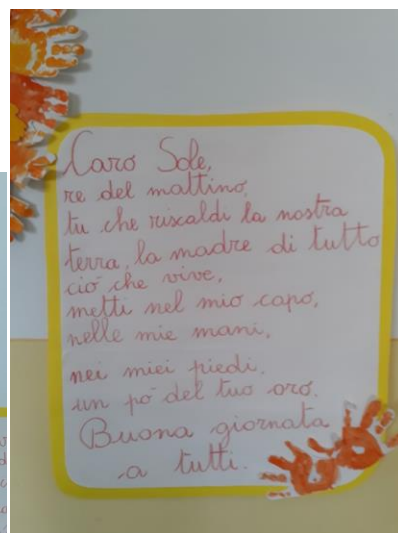 Caro Sole,
re del mattino,
tu che riscaldi la nostra
terra, la madre di tutto
ciò che vive,
metti nel mio capo,
nelle mie mani,
nei miei piedi,
un pò del tuo oro.
Buona giornata
a tutti.